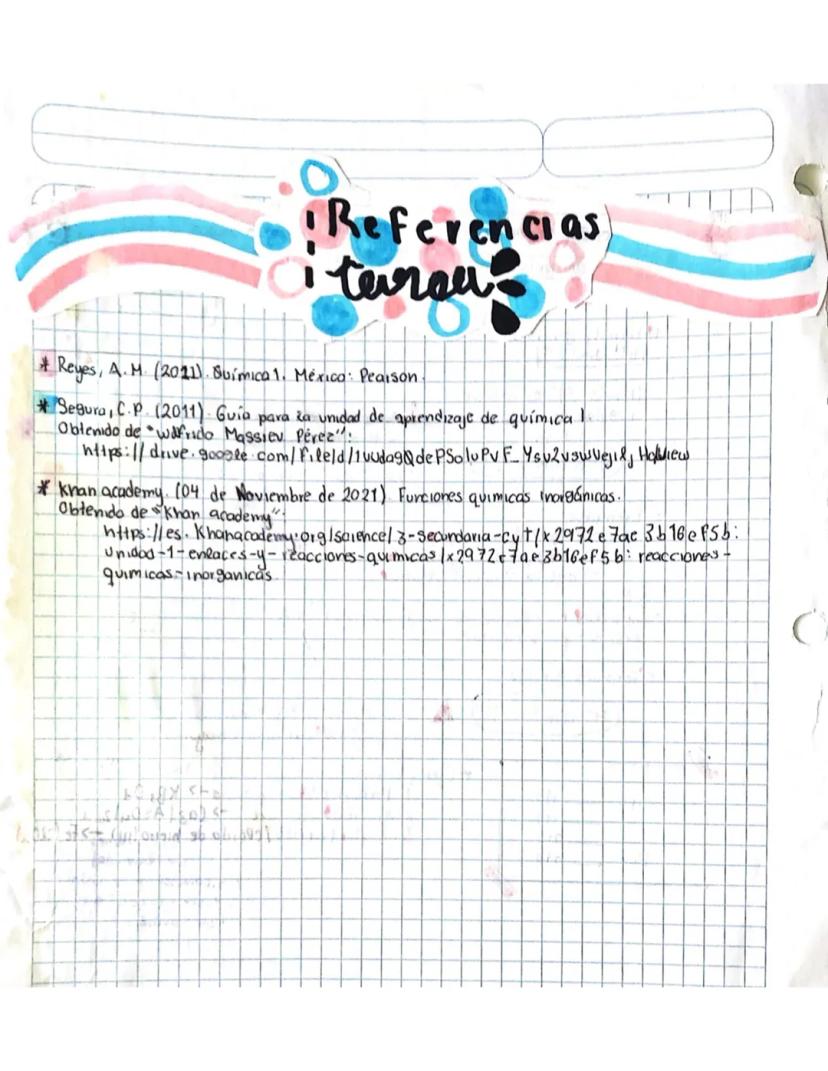 Referencias
tarea
* Reyes, A.M. (2011). Química 1. México: Pearson.
* Segura, C.P. (2011). Guía para la unidad de aprendizaje de química 1.
Obtenido de "Wilfrido Massieu Pérez":
* Khan academy. (04 de Noviembre de 2021) Funciones químicas inorgánicas.
Obtenido de "Khan academy":
https://es.Khanacademy.org/science/3-secundaria-cyt/x2972e7ae3b16ef5b:
unidad-1-enlaces-y-reacciones-quimicas/x2972e7ae3b16ef5b:reacciones-
quimicas-inorganicas